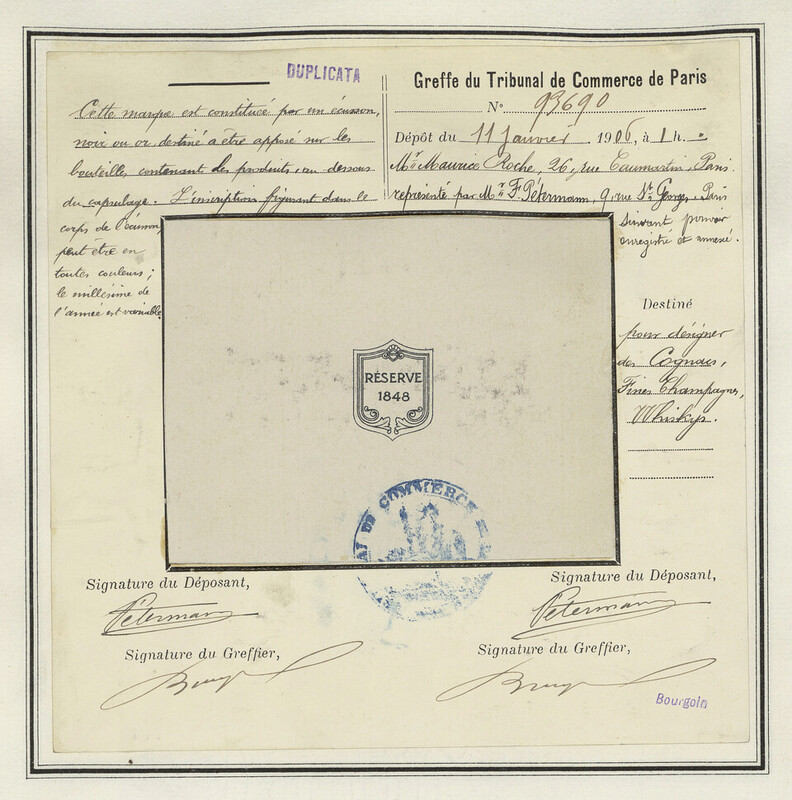 DUPLICATA
Cette marque est constituée par un écusson,
noir ou or destiné a être apposé sur les
bouteilles contenant les produits, au dessous
du capsulage. L'inscription figurant dans le
corps de l'écusson,
peut être en
toutes couleurs ;
le millésime de
l'année est variable.
Greffe du Tribunal de Commerce de Paris
N° 93690
Dépôt du 11 Janvier 1906, à 1 h.
Mr Maurice Roche, 26, rue Caumartin, Paris.
représenté par Mr F. Pétermann, 9, rue St Georges, Paris
suivant pouvoir
enregistré et annexé.
Destiné
pour désigner
des Cognacs,
Fines Champagnes,
Whiskys.
RÉSERVE
1848
DE COMMERCE
Signature du Déposant,
Pétermann
Signature du Greffier,
Signature du Déposant,
Pétermann
Signature du Greffier,
Bourgoin